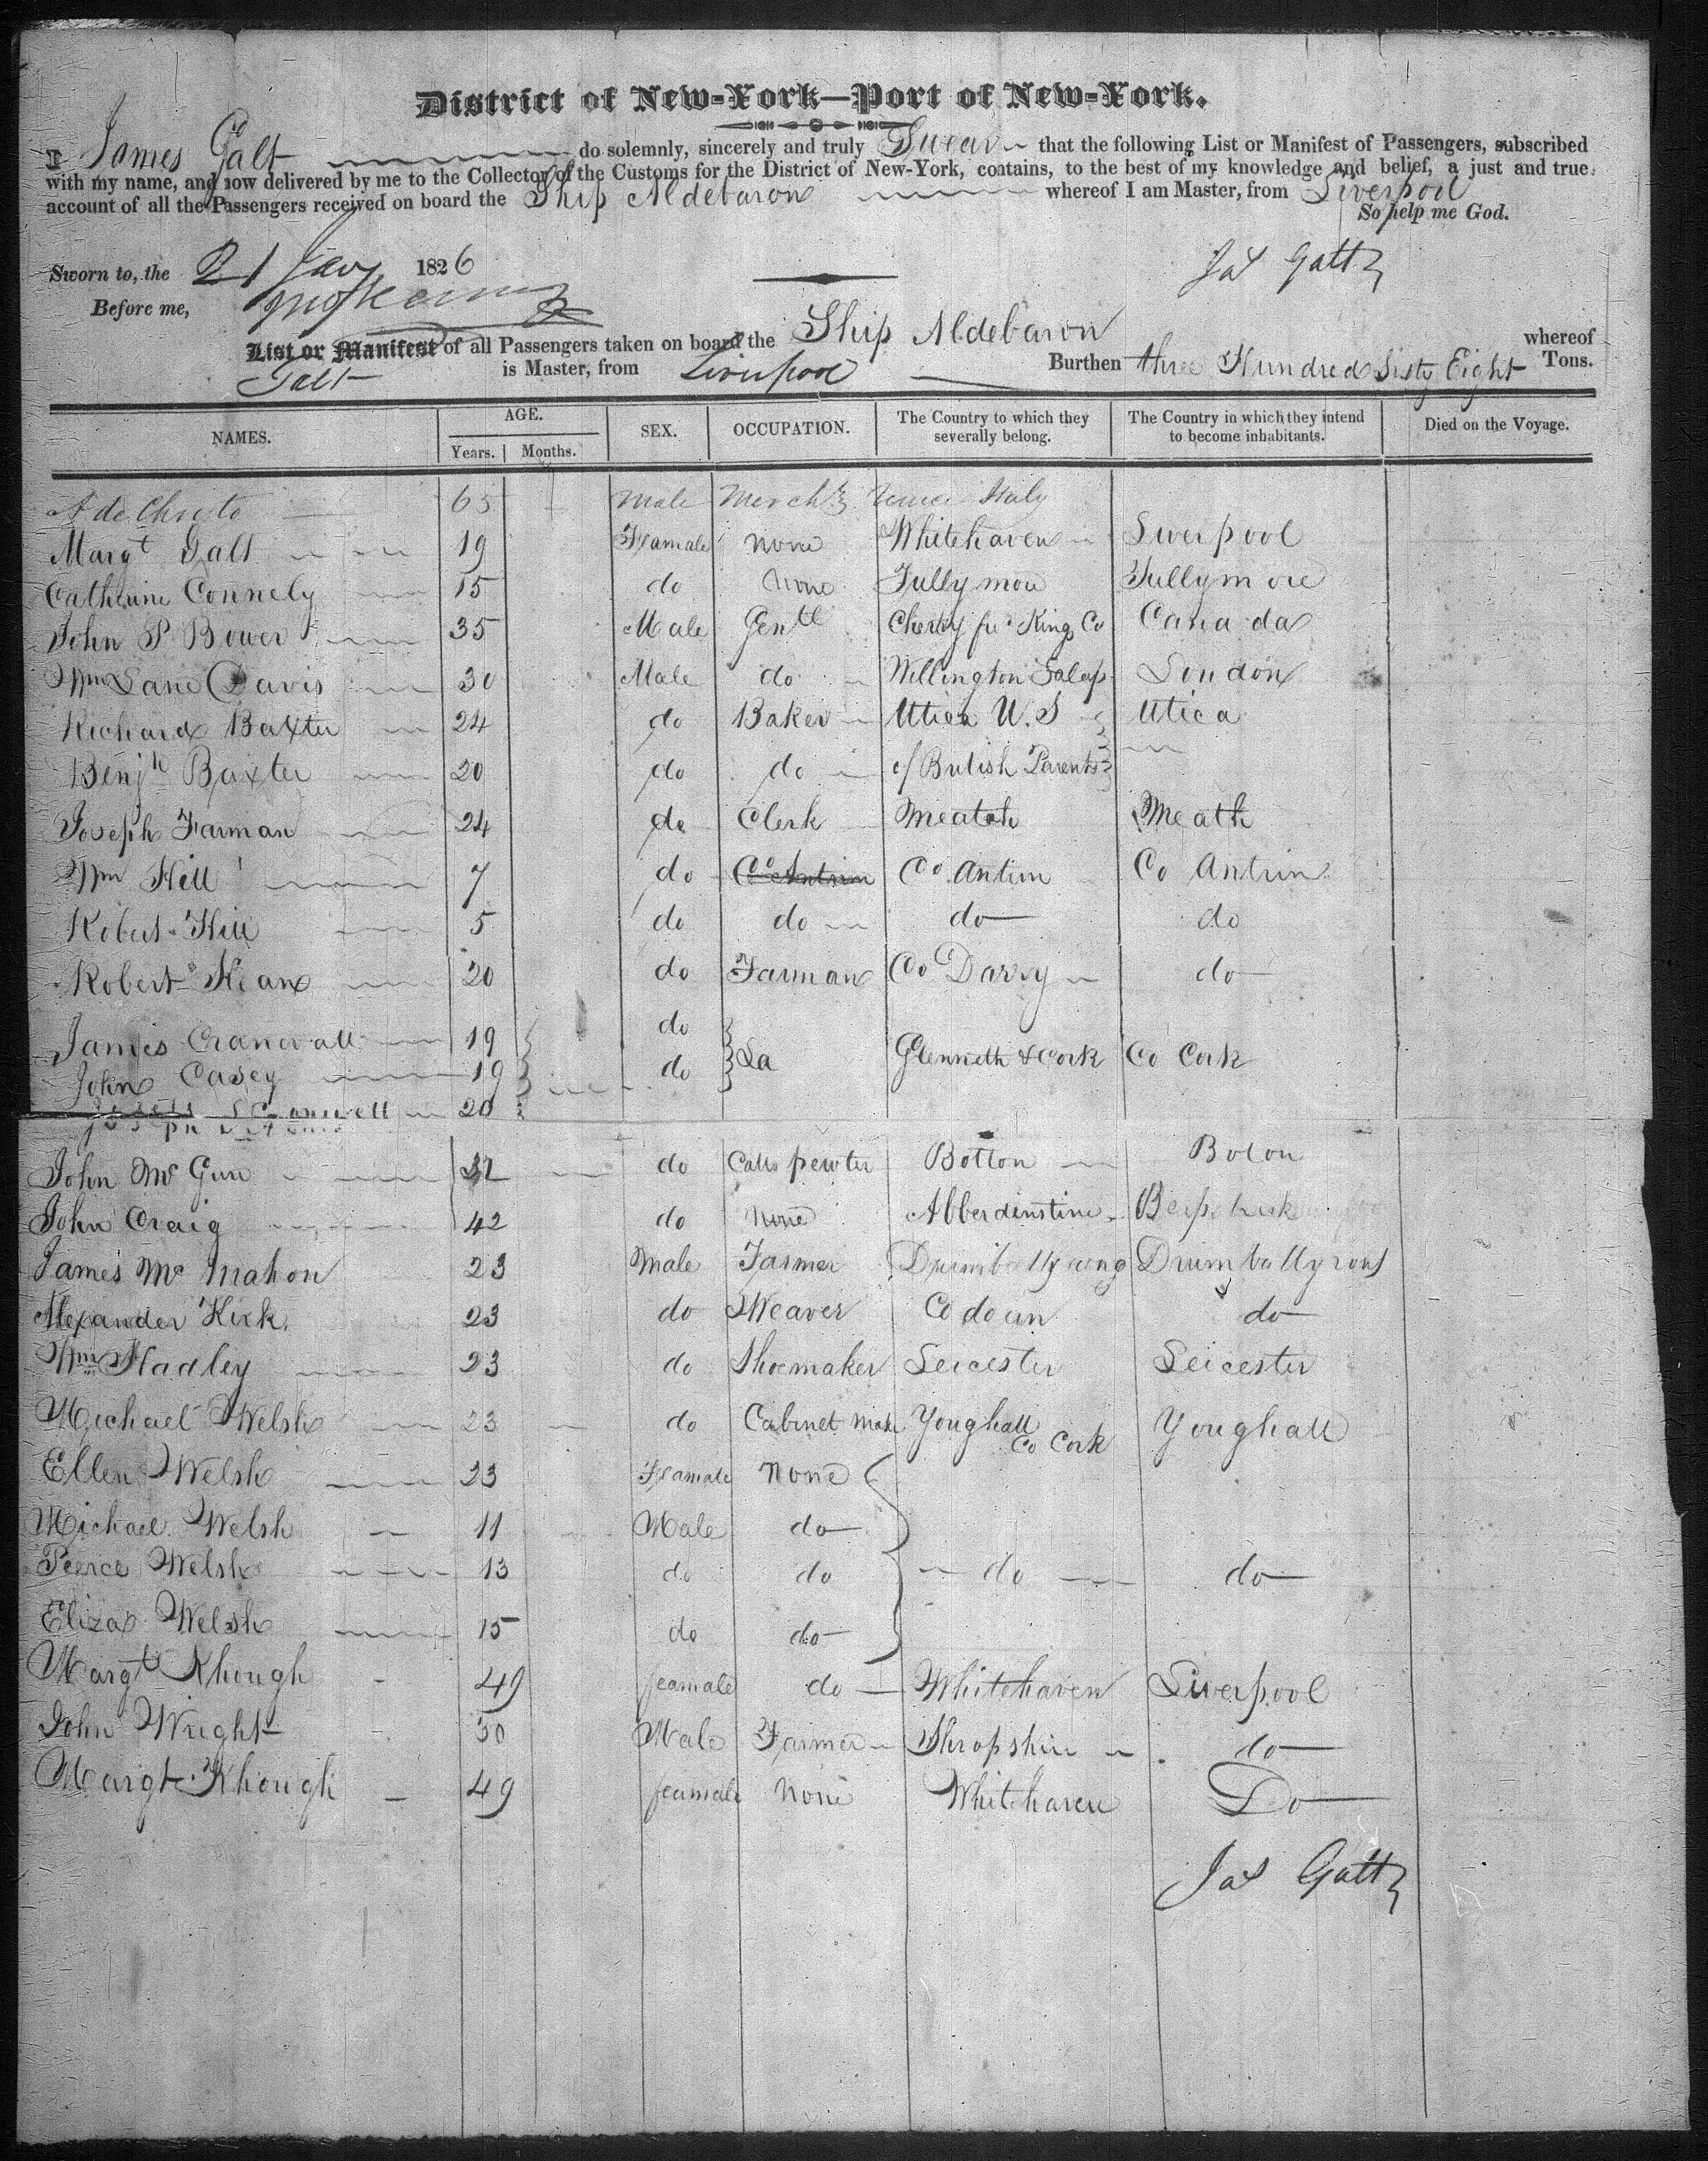 District of New-York—Port of New-York.
I James Galt do solemnly, sincerely and truly Swear that the following List or Manifest of Passengers, subscribed
with my name, and now delivered by me to the Collector of the Customs for the District of New-York, contains, to the best of my knowledge and belief, a just and true
account of all the Passengers received on board the Ship Aldebaron whereof I am Master, from Liverpool
So help me God.
Sworn to, the 21 Jany 1826 Jas Galt
Before me,
List or Manifest of all Passengers taken on board the Ship Aldebaron whereof
Galt is Master, from Liverpool Burthen three Hundred Sixty Eight Tons.
NAMES. AGE. SEX. OCCUPATION. The Country to which they severally belong. The Country in which they intend to become inhabitants. Died on the Voyage.
Years. Months.
A de Christo 65 Male Mercht Italy
Margt Galt 19 Feamale none Whitehaven Liverpool
Catherine Connely 15 do None Tullymore Tullymore
John P Bower 35 Male Gentl King Co Canada
Wm Lane Davis 30 Male do Wellington Salop London
Richard Baxter 24 do Baker Utica U.S Utica
Benjn Baxter 20 do do of British Parents
Joseph Farman 24 do Clerk Meatch Meath
Wm Hill 7 do Co Antrim Co Antim Co Antrim
Robert Hill 5 do do do do
Robert Kean 20 do Farman Co Darry do
James Cranwall 19 do
John Casey 19 do La Glenneth & Cork Co Cork
20
John Mc Gun 32 do Botton Boton
John Craig 42 do None
James Mc Mahon 23 Male Farmer Drumballyrony Drumballyrony
Alexander Kirk 23 do Weaver Co doun do
Wm Hadley 23 do Shoemaker Leicester Leicester
Michael Welsh 23 do Cabinet Make Youghall Co Cork Youghall
Ellen Welsh 23 Feamale None
Michael Welsh 11 Male do
Peerce Welsh 13 do do do do
Eliza Welsh 15 do do
Margt Khough 49 feamale do Whitehaven Liverpool
John Wright 30 Male Farmer Shropshire do
Margt Khough 49 feamale None Whitehaven Do
Jas Galt